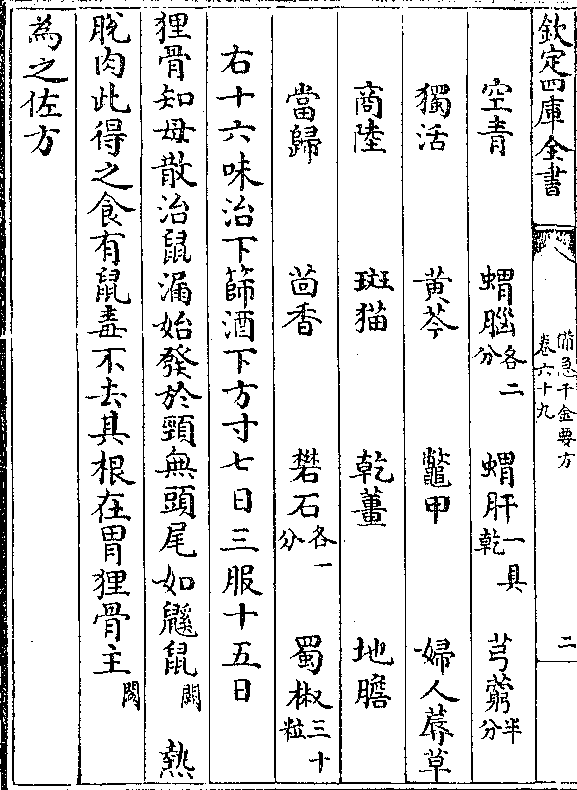 欽定四庫全書
備急千金要方
卷六十九
二
空青　蝟腦各二分　蝟肝一具乾　芎藭半分
獨活　黃芩　鼈甲　婦人蓐草
商陸　斑猫　乾薑　地膽
當歸　茴香　礬石各一分　蜀椒三十粒
右十六味治下篩酒下方寸七日三服十五日
狸骨知母散治鼠漏始發於頸無頭尾如鼷鼠闕熱
脫肉此得之食有鼠毒不去其根在胃狸骨主闕
為之佐方